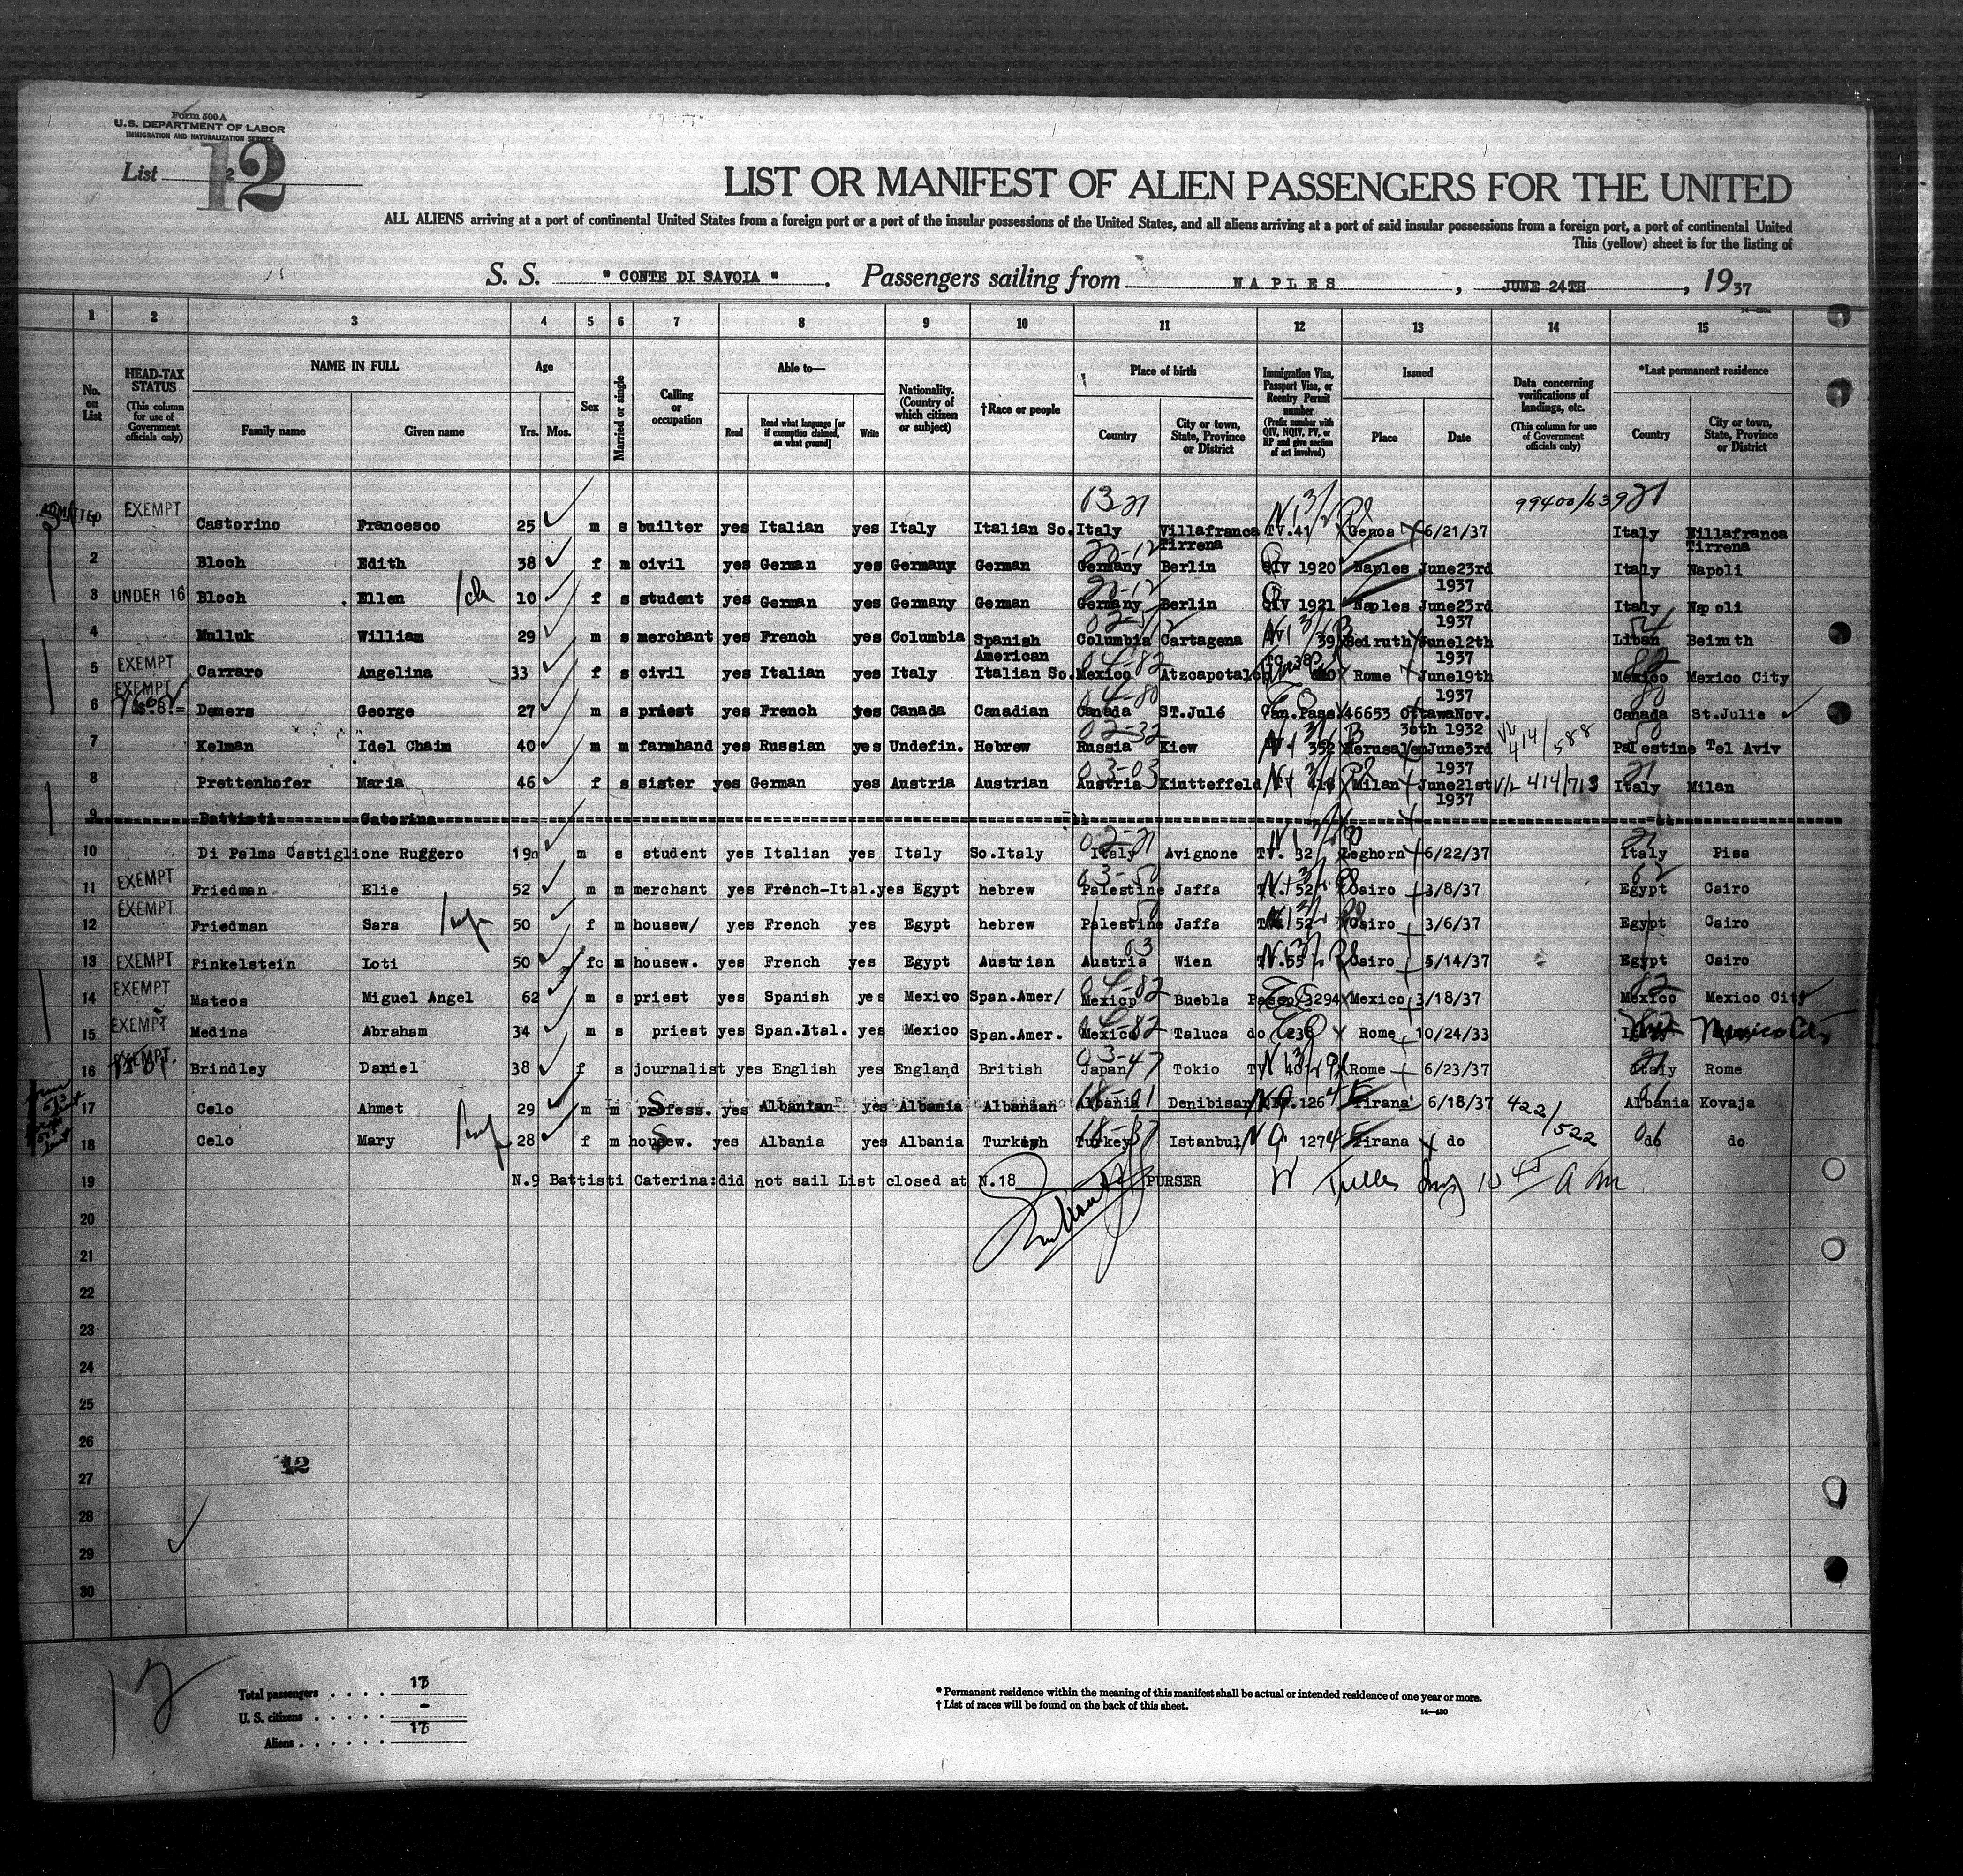 Form 500 A
U.S. DEPARTMENT OF LABOR
IMMIGRATION AND NATURALIZATION SERVICE
List 2 12
LIST OR MANIFEST OF ALIEN PASSENGERS FOR THE UNITED
ALL ALIENS arriving at a port of continental United States from a foreign port or a port of the insular possessions of the United States, and all aliens arriving at a port of said insular possessions from a foreign port, a port of continental United
This (yellow) sheet is for the listing of
S. S. " CONTE DI SAVOIA " . Passengers sailing from NAPLES , JUNE 24TH , 1937
1 2 3 4 5 6 7 8 9 10 11 12 13 14 15
No. on List
HEAD-TAX STATUS (This column for use of Government officials only)
NAME IN FULL Family name Given name
Age Yrs. Mos.
Sex
Married or single
Calling or occupation
Able to— Read Read what language [or if exemption claimed, on what ground] Write
Nationality. (Country of which citizen or subject)
†Race or people
Place of birth Country City or town, State, Province or District
Immigration Visa, Passport Visa, or Reentry Permit number (Prefix number with QIV, NQIV, PV, or RP and give section of act involved)
Issued Place Date
Data concerning verifications of landings, etc. (This column for use of Government officials only)
*Last permanent residence Country City or town, State, Province or District
ADMITTED EXEMPT Castorino Francesco 25 m s builter yes Italian yes Italy Italian So. Italy Villafranca Tirrena TV.41 Genos 6/21/37 99400/639 Italy Villafranca Tirrena
2 Bloch Edith 38 f m civil yes German yes Germany German 20-12 Germany Berlin QIV 1920 Naples June23rd 1937 Italy Napoli
3 UNDER 16 Bloch Ellen 10 f s student yes German yes Germany German 20-12 Germany Berlin QIV 1921 Naples June23rd 1937 Italy Napoli
4 Mulluk William 29 m s merchant yes French yes Columbia Spanish American Columbia Cartagena 39 Beiruth June12th 1937 Liban Beiruth
5 EXEMPT Carraro Angelina 33 f s civil yes Italian yes Italy Italian So. 04-82 Mexico Atzcapotalco Rome June19th 1937 82 Mexico Mexico City
6 EXEMPT Demers George 27 m s priest yes French yes Canada Canadian 04-80 Canada ST.Julé Can.Pass. 46653 Ottawa Nov. 30th 1932 80 Canada St.Julie
7 Kelman Idel Chaim 40 m m farmhand yes Russian yes Undefin. Hebrew 02-32 Russia Kiew 352 Jerusalem June3rd 1937 414/588 50 Palestine Tel Aviv
8 Prettenhofer Maria 46 f s sister yes German yes Austria Austrian 03-03 Austria Kiutteffeld TV 418 Milan June21st 1937 V/L 414/713 Italy Milan
9 Battisti Caterina
10 Di Palma Castiglione Ruggero 19 m s student yes Italian yes Italy So.Italy Italy Avignone TV. 32 Leghorn 6/22/37 Italy Pisa
11 EXEMPT Friedman Elie 52 m m merchant yes French-Ital. yes Egypt hebrew 03-50 Palestine Jaffa TV. 52 Cairo 3/8/37 62 Egypt Cairo
12 EXEMPT Friedman Sara 50 f m housew/ yes French yes Egypt hebrew 50 Palestine Jaffa 52 Cairo 3/6/37 Egypt Cairo
13 EXEMPT Finkelstein Loti 50 f m housew. yes French yes Egypt Austrian 03 Austria Wien TV.55 Cairo 5/14/37 Egypt Cairo
14 EXEMPT Mateos Miguel Angel 62 m s priest yes Spanish yes Mexico Span.Amer/ 04-82 Mexico Buebla Passp 3294 Mexico 3/18/37 82 Mexico Mexico City
15 EXEMPT Medina Abraham 34 m s priest yes Span.Ital. yes Mexico Span.Amer. 04-82 Mexico Taluca do 238 Rome 10/24/33 Mexico City
16 EXEMPT Brindley Daniel 38 f s journalist yes English yes England British 03-47 Japan Tokio TV 40 Rome 6/23/37 Italy Rome
17 Celo Ahmet 29 m m profess. yes Albanian yes Albania Albanian 18-01 Albania Denibisar 126 Tirana 6/18/37 422/522 01 Albania Kovaja
18 Celo Mary 28 f m housew. yes Albania yes Albania Turkish 18-37 Turkey Istanbul 127 Tirana do 01 do do
19 N.9 Battisti Caterina:did not sail List closed at N.18 PURSER
20
21
22
23
24
25
26
12
27
28
29
30
12
Total passengers . . . . 
U. S. citizens . . . . . -
Aliens . . . . . .
* Permanent residence within the meaning of this manifest shall be actual or intended residence of one year or more.
† List of races will be found on the back of this sheet.
14—430